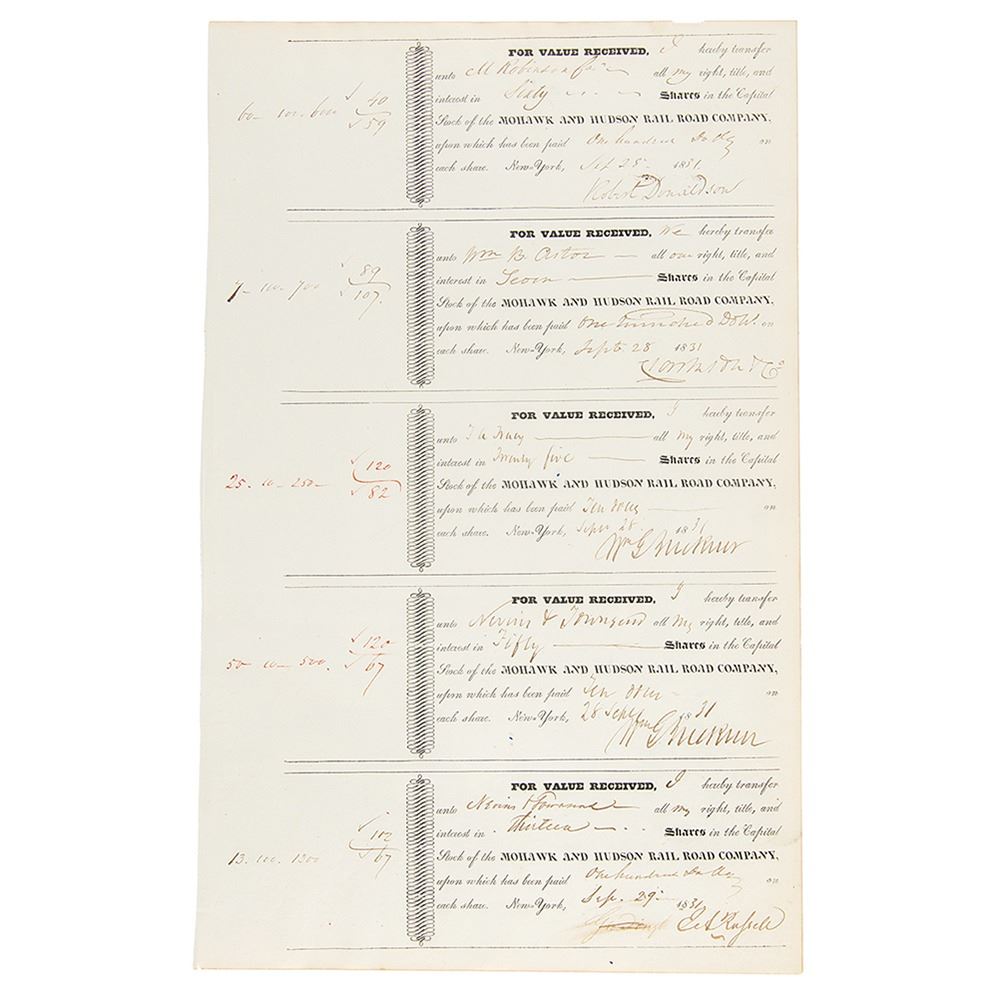 FOR VALUE RECEIVED, I hereby transfer
unto M Robinson all my right, title, and
interest in Sixty Shares in the Capital
60 - 100. 600 40
59
Stock of the MOHAWK AND HUDSON RAIL ROAD COMPANY,
upon which has been paid One hundred Dolls on
each share. New-York, Sept 28 1831
Robert Donaldson
FOR VALUE RECEIVED, We hereby transfer
unto Wm B. Astor all our right, title, and
7 - 100. 700 89
107.
interest in Seven Shares in the Capital
Stock of the MOHAWK AND HUDSON RAIL ROAD COMPANY,
upon which has been paid One Hundred Doll. on
each share. New-York, Sept. 28 1831
FOR VALUE RECEIVED, I hereby transfer
unto all my right, title, and
interest in Twenty five Shares in the Capital
25. 10 - 250 - 120
82
Stock of the MOHAWK AND HUDSON RAIL ROAD COMPANY,
upon which has been paid Ten on
each share. New-York, Sept. 28 1831
Wm G Buckner
FOR VALUE RECEIVED, I hereby transfer
unto Nevins & Townsend all my right, title, and
interest in Fifty Shares in the Capital
50 - 10 - 500. 120
67
Stock of the MOHAWK AND HUDSON RAIL ROAD COMPANY,
upon which has been paid Ten on
each share. New-York, 28 Sept 1831
Wm G Buckner
FOR VALUE RECEIVED, I hereby transfer
unto Nevins & Townsend all my right, title, and
interest in Thirteen Shares in the Capital
13. 100. 1300 102
67
Stock of the MOHAWK AND HUDSON RAIL ROAD COMPANY,
upon which has been paid One hundred Dolls on
each share. New-York, Sep. 29 1831
Russell